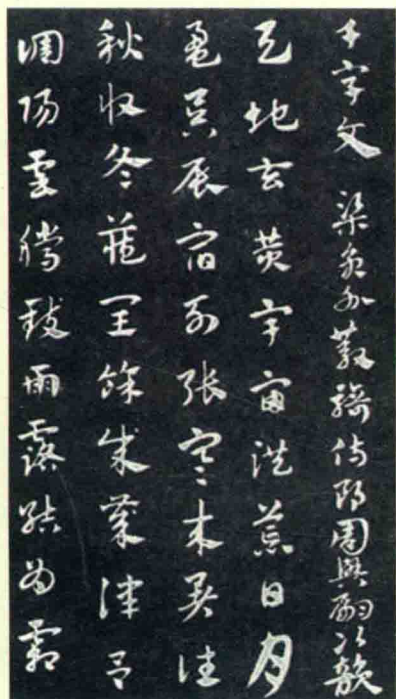 千字文 梁員外散騎侍郎周興嗣次韻
天地玄黄宇宙洪荒日月
盈昃辰宿列張寒来暑往
秋收冬蔵閏餘成歲律吕
調陽雲騰致雨露結為霜